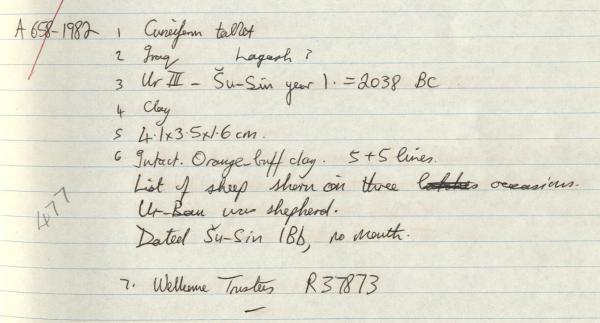 A 658-1982 1 Cuneiform tablet
2 Iraq Lagash?
3 Ur III - Šu-Sin year 1. = 2038 BC
4 Clay
5 4.1x3.5x1.6cm.
6. Intact. Orange buff clay. 5+5 lines.
List of sheep shorn on three batches occasions.
Ur-Bau was shepherd.
Dated Šu-Sin 1Bb, no month.
477
7. Wellcome Trustees R37873